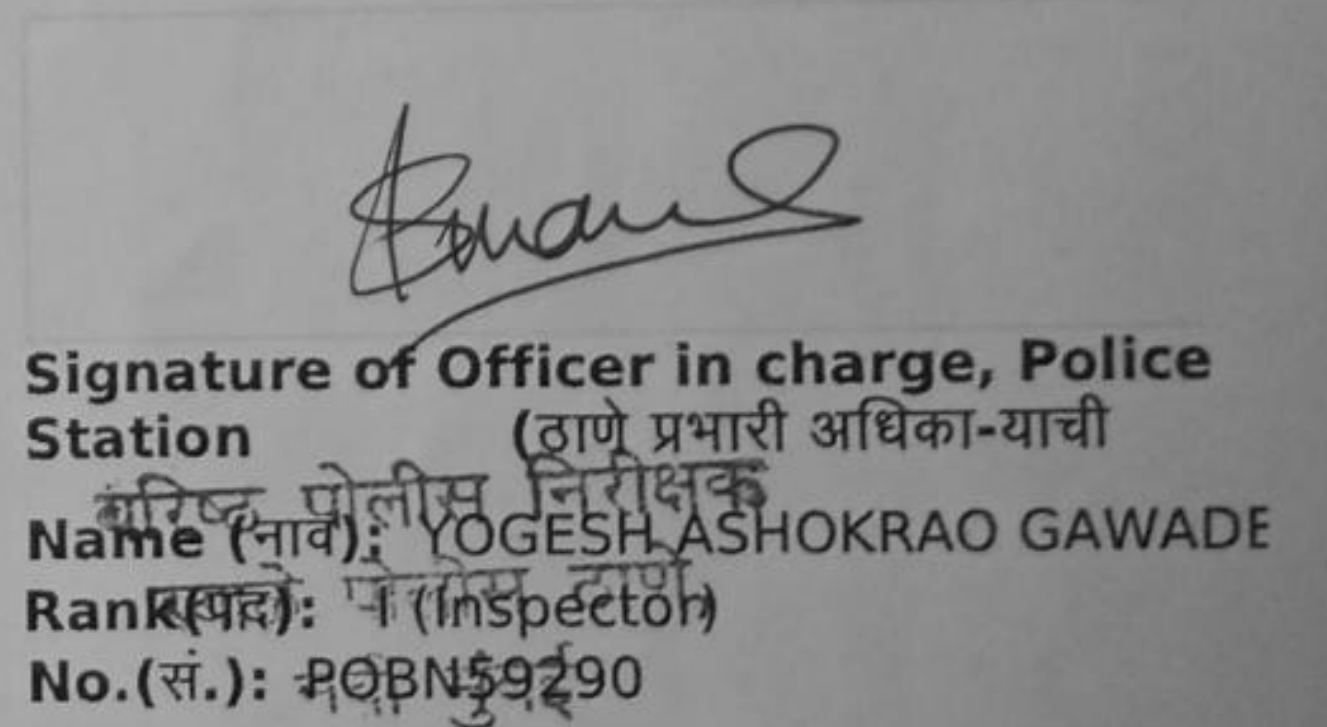 Signature of Officer in charge, Police
Station (ठाणे प्रभारी अधिका-याची
वरिष्ठ पोलीस निरीक्षक
Name (नाव): YOGESH ASHOKRAO GAWADE
पोलीस ठाणे
Rank(पद): I (Inspector)
No.(सं.): POBN59290